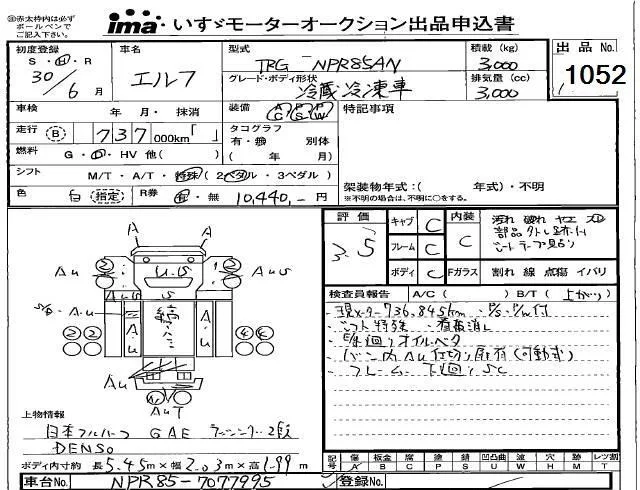 ◎赤太枠内は必ず
ボールペンで
ご記入下さい。
ima いすゞモーターオークション出品申込書
初度登録
S・H・R
30/6月
車名
エルフ
型式
TRG-NPR85AN
積載 (kg)
3,000
出品No.
1052
グレード・ボディ形状
冷蔵冷凍車
排気量 (cc)
3,000
車検 年 月・ 抹消
装備 AC PS PW
特記事項
走行 B 737 000km「 」
タコグラフ
有・無 別体
( 年 月)
燃料 G・D・HV 他( )
シフト M/T・A/T・特殊( 2ペダル・3ペダル )
色 白 (指定) R券 有・無 10,440.-円
架装物年式:( 年式)・不明
※不明の場合は、不明に○をする。
評価 3.5
キャブ C
フレーム C
ボディ C
内装 C
汚れ 破れ ヤニ スレ
Fガラス 割れ 線 点傷 イバリ
A A
Au Au
② ② ① ②
U.S
Au S
Au
A A
Au
② ② ④ ④
Au Au
AuT
検査員報告 A/C( ) B/T( 上かっ )
・現メーター736,845km
・シフト特殊
・下廻りオイルベタ
・フレーム 下廻りSC
上物情報
日本フルハーフ GAE
DENSO
ボディ内寸約 長5.45m×幅2.03m×高1.99m
記号 傷 板金 腐 塗 錆 凹凸曲 波 穴 跡 レツ割
A B C P S U W H M T
車台No. NPR85-7077995
登録No.